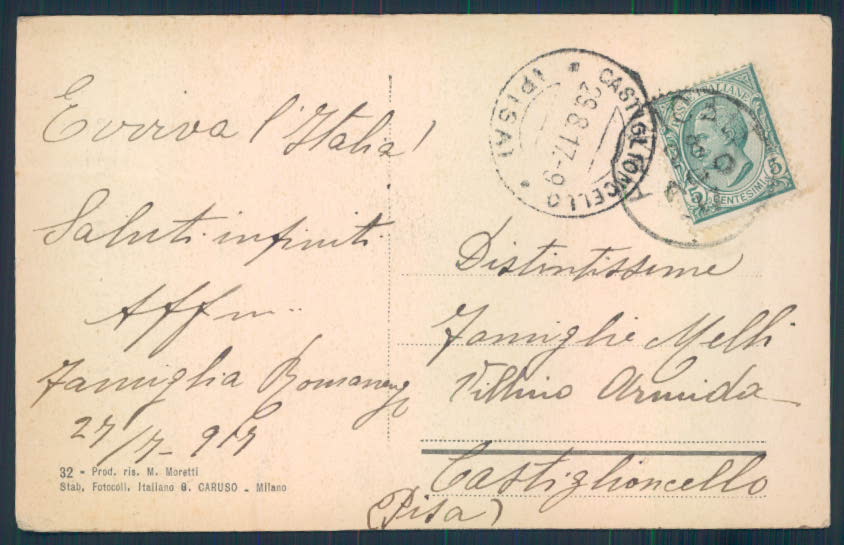 Evviva l'Italia!
Saluti infiniti
Affm..
Famiglia Romanengo
27/7-917
32 - Prod. ris. M. Moretti
Stab. Fotocoll. Italiano G. CARUSO - Milano
CASTIGLIONCELLO
* (PISA) *
29.8.17-9
ITALIANE
5 CENTESIMI 5
Distintissime
Famiglie Melli
Villino Armida
Castiglioncello
(Pisa)